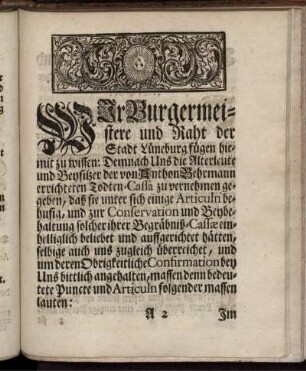 WIr Burgermei-
stere und Raht der
Stadt Lüneburg fügen hie-
mit zu wissen: Demnach Uns die Alterleute
und Beysitzer der von Anthon Behrmann
errichteten Todten-Cassa zu vernehmen ge-
geben, daß sie unter sich einige Articuln be-
hufig, und zur Conservation und Beybe-
haltung solcher ihrer Begräbniß-Cassæ ein-
helliglich beliebet und auffgerichtet hätten,
selbige auch uns zugleich überreichet, und
um deren Obrigkeitliche Confirmation bey
Uns bittlich angehalten, massen denn bedeu-
tete Puncte und Articuln folgender massen
lauten:
A 2 Im